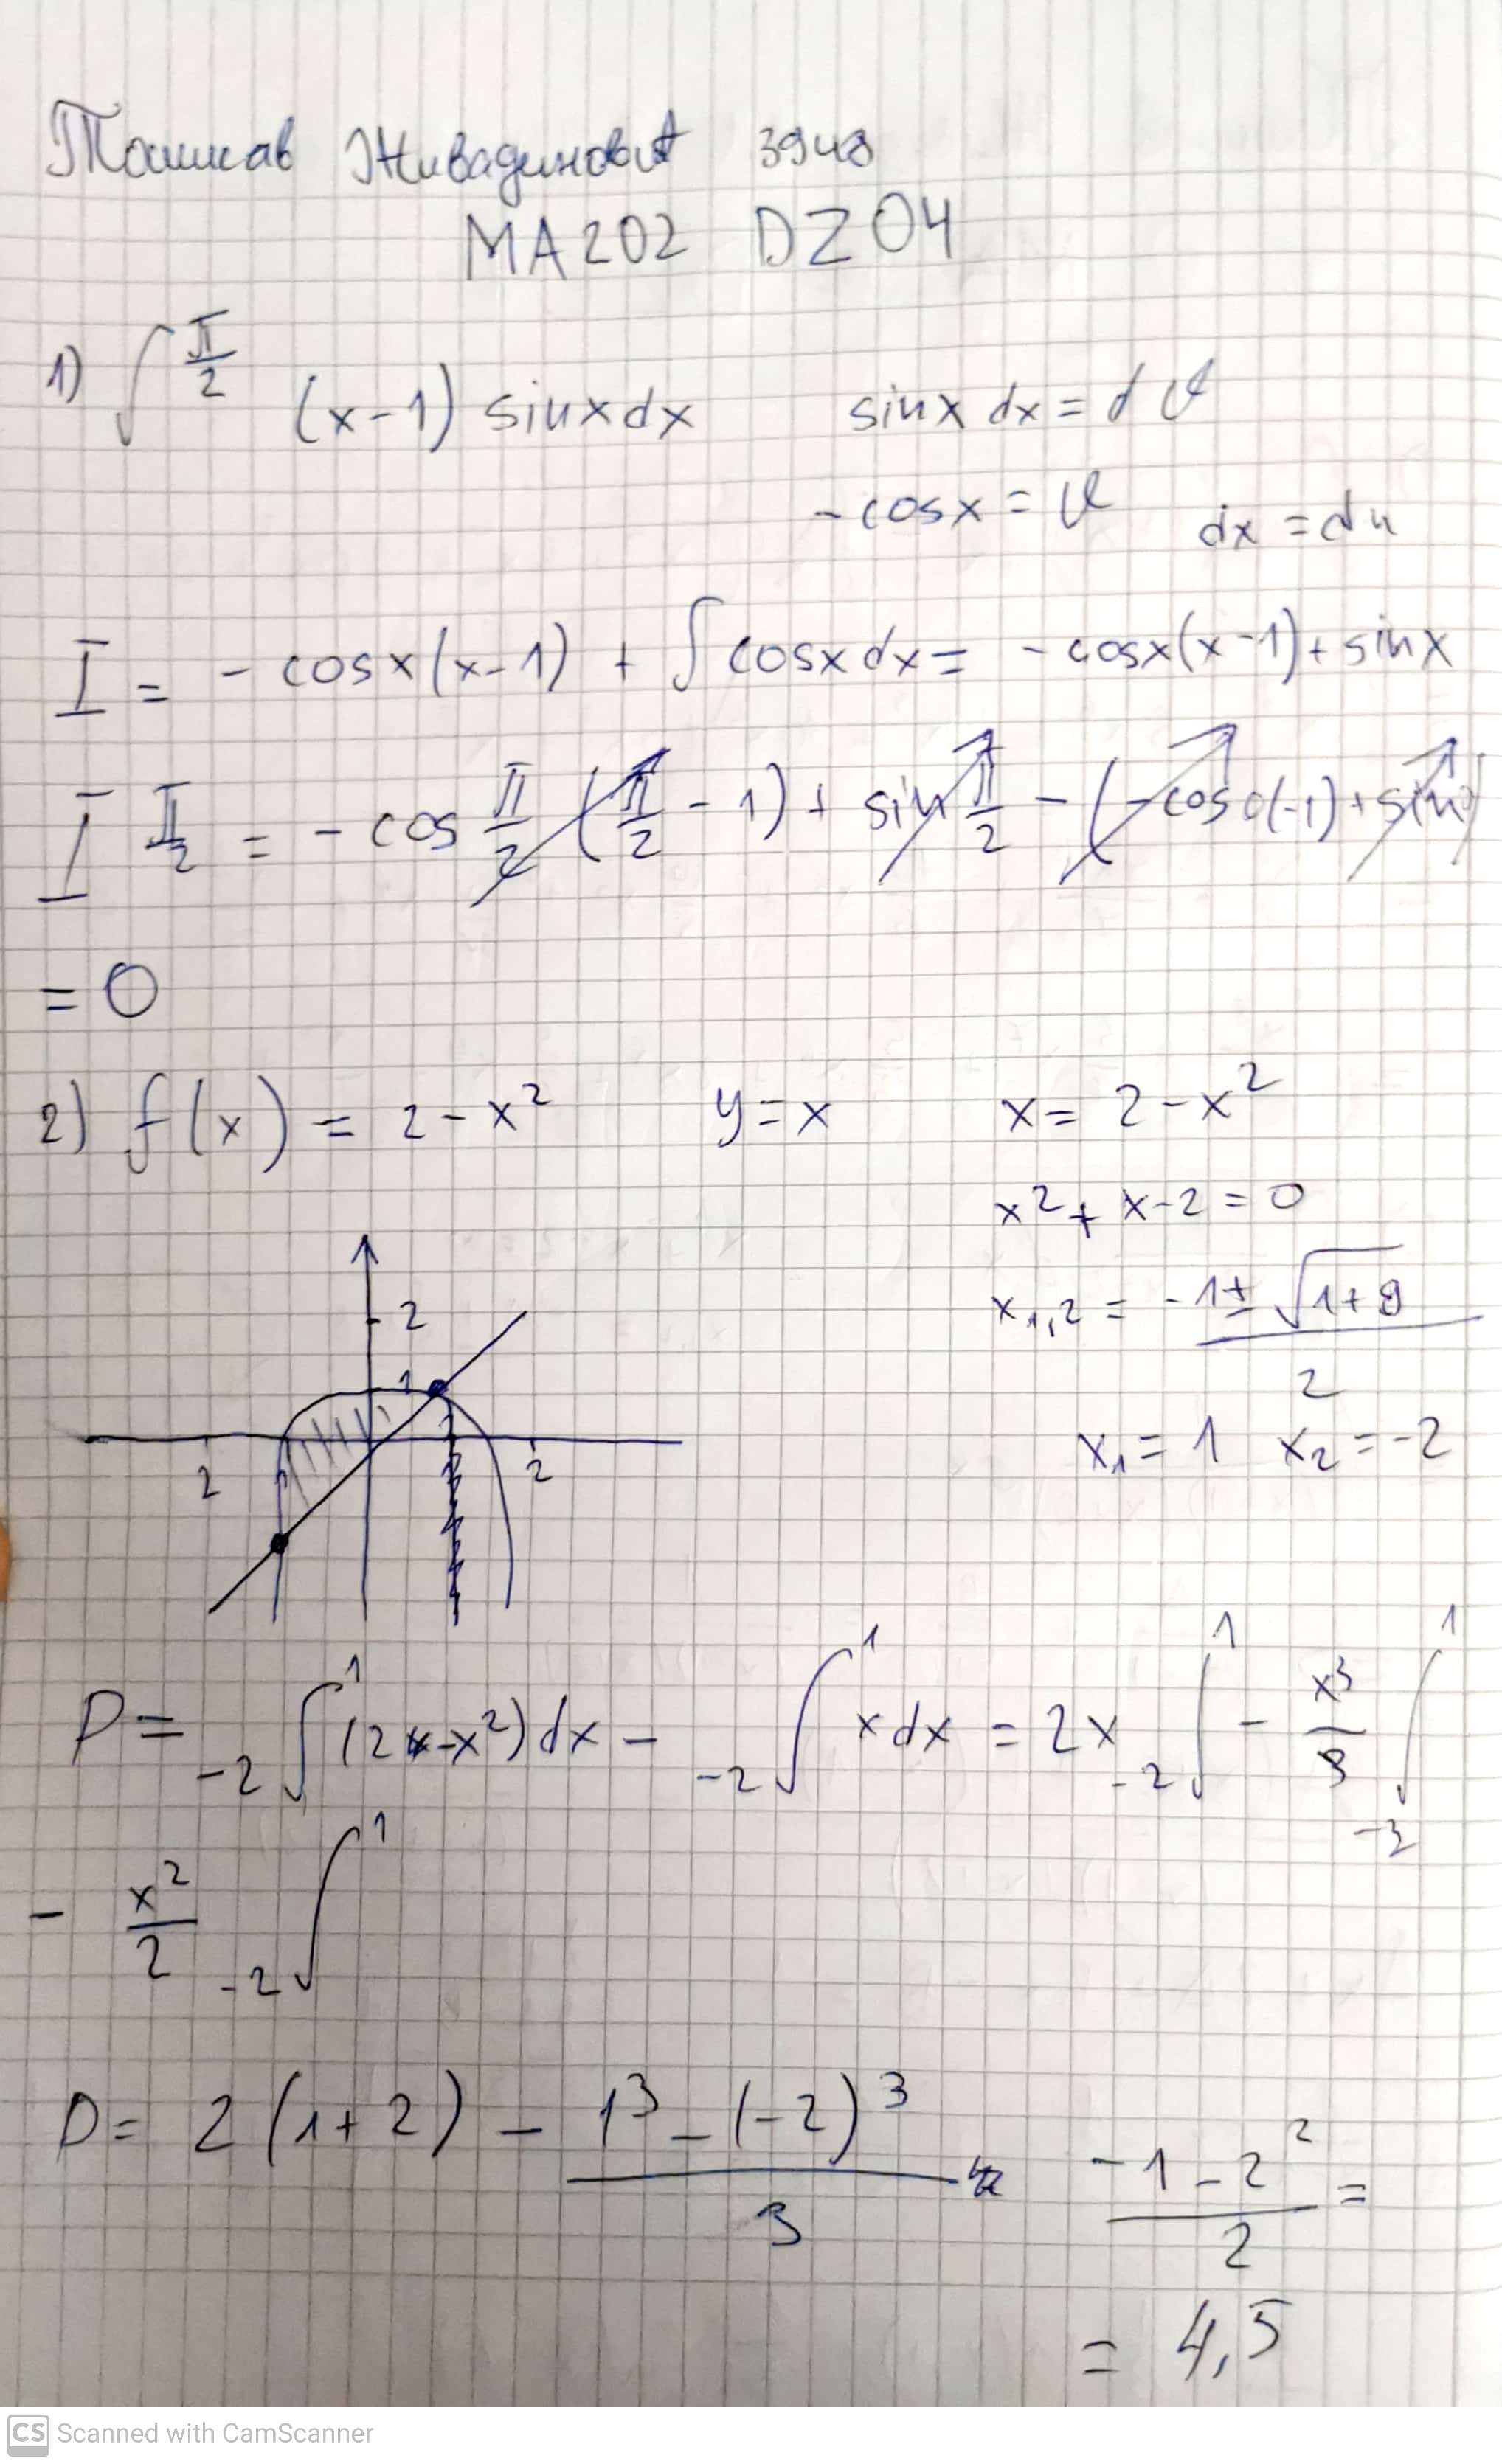 Томислав Живадиновић 3948
MA202 DZ04
1) ∫ π/2 (x-1) sinx dx   sinx dx = dv
-cosx = v   dx = du
I = -cosx(x-1) + ∫ cosx dx = -cosx(x-1) + sinx
I π/2 = -cos π/2 (π/2 - 1) + sin π/2 - (-cos 0(-1) + sin 0)
= 0
2) f(x) = 2-x²   y=x   x = 2-x²
x² + x-2 = 0
x1,2 = -1± √1+8 / 2
x1 = 1   x2 = -2
2
1
2
2
P = -2∫1 (2-x²)dx - -2∫1 x dx = 2x -2∫1 - x³/3 ∫1 -2
- x²/2 -2∫1
P = 2(1+2) - 1³-(-2)³ / 3   -1-2² / 2 =
= 4,5
CS Scanned with CamScanner